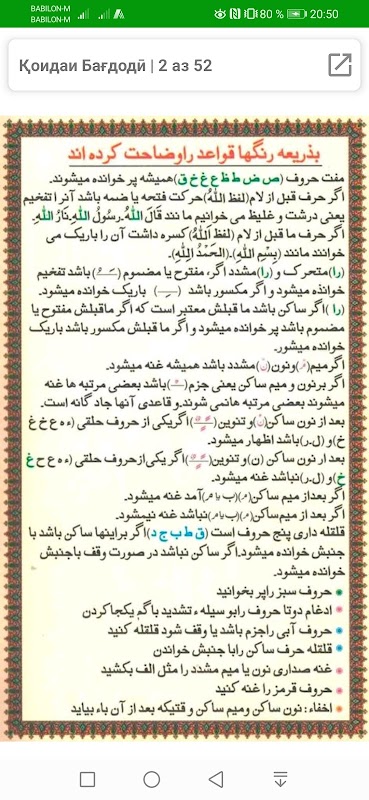 BABILON-M
BABILON-M
80 % 20:50
Қоидаи Бағдодӣ | 2 аз 52
بذریعه رنگها قواعد را وضاحت کرده اند
مفت حروف (ص ض ط ظ ع غ خ ق) همیشه پر خوانده میشوند.
اگر حرف قبل از لام (لفظ اَللّٰهُ) حرکت فتحه یا ضمه باشد آنرا تفخیم
یعنی درشت و غلیظ می خوانیم ما نند قَالَ اللّٰهُ. رَسُولُ اللّٰهِ. نَارُ اللّٰهِ.
اگر حرف ما قبل از لام (لفظ اَللّٰهُ) کسره داشت آن را باریک می
خوانند مانند (بِسْمِ اللّٰهِ). (اَلْحَمْدُ لِلّٰهِ).
(را) متحرک و (را) مشدد اگر، مفتوح یا مضموم باشد تفخیم
خوانده میشود و اگر مکسور باشد باریک خوانده میشود.
(را) اگر ساکن باشد ما قبلش معتبر است که اگر ماقبلش مفتوح یا
مضموم باشد پر خوانده میشود و اگر ما قبلش مکسور باشد باریک
خوانده میشور.
اگر میم (م) و نون (ن) مشدد باشد همیشه غنه میشود.
اگر بر نون و میم ساکن یعنی جزم باشد بعضی مرتبه ها غنه
میشوند بعضی مرتبه هانمی شوند. و قاعدی آنها جاد گانه است.
بعد از نون ساکن (ن) و تنوین اگر یکی از حروف حلقی (ء ه ع ح غ
خ) و (ل. ر) باشد اظهار میشود.
بعد ار نون ساکن (ن) و تنوین اگر یکی از حروف حلقی (ء ه ع ح غ
خ) و (ل. ر) نباشد غنه میشود.
اگر بعد از میم ساکن (م) (ب یا م) آمد غنه میشود.
اگر بعد از میم ساکن (م) (ب یا م) نباشد غنه نیمشود.
قلقله داری پنج حروف است (ق ط ب ج د) اگر براینها ساکن باشد با
جنبش خوانده میشود. اگر ساکن نباشد در صورت وقف باجنبش
خوانده میشود.
حروف سبز را پر بخوانید
ادغام دوتا حروف رابو سیله ء تشدید باگم یکجا کردن
حروف آبی را جزم باشد یا وقف شود قلقله کنید
قلقله حرف ساکن رابا جنبش خواندن
غنه صداری نون یا میم مشدد را مثل الف بکشید
حروف قرمز را غنه کنید
اخفاء: نون ساکن ومیم ساکن و قتیکه بعد از آن باء بیاید